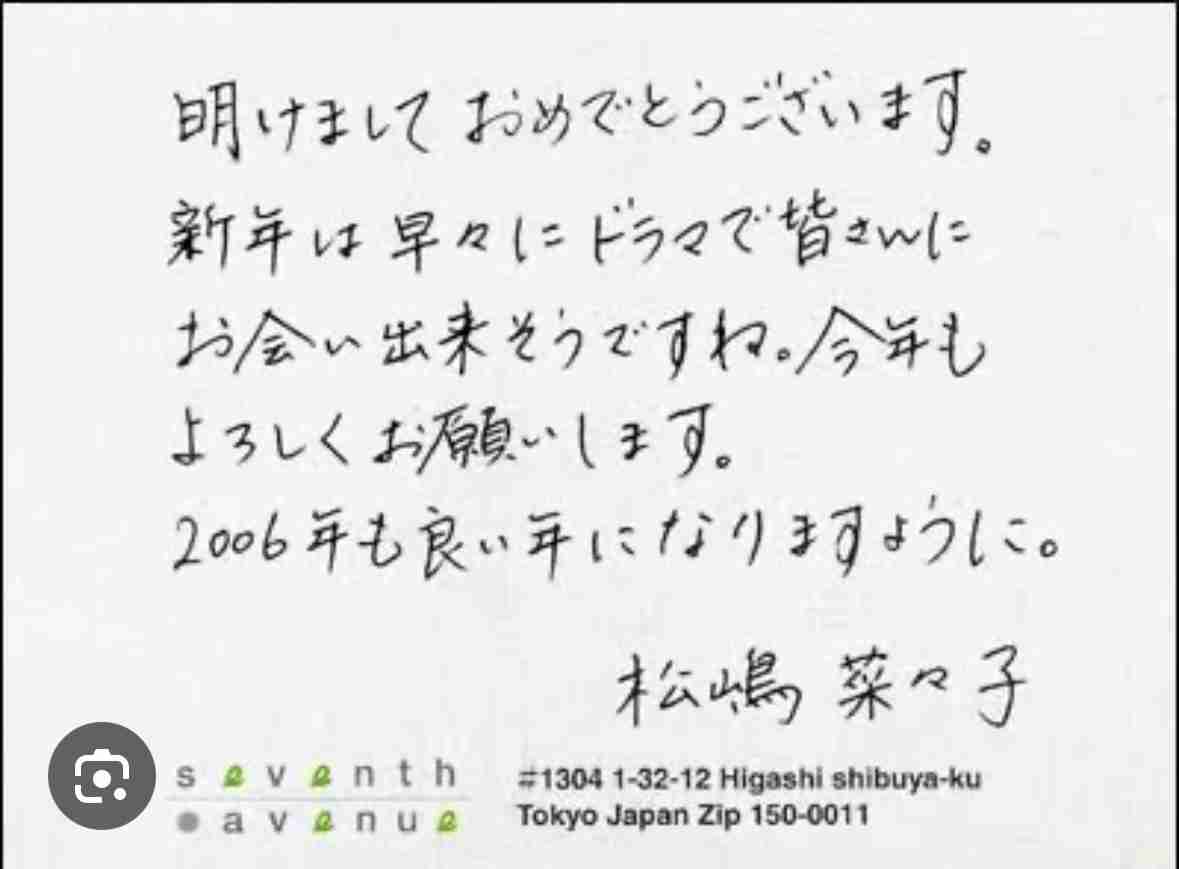 明けましておめでとうございます。
新年は早々にドラマで皆さんに
お会い出来そうですね。今年も
よろしくお願いします。
2006年も良い年になりますように。
松嶋 菜々子
seventh
avenue
#1304 1-32-12 Higashi shibuya-ku
Tokyo Japan Zip 150-0011